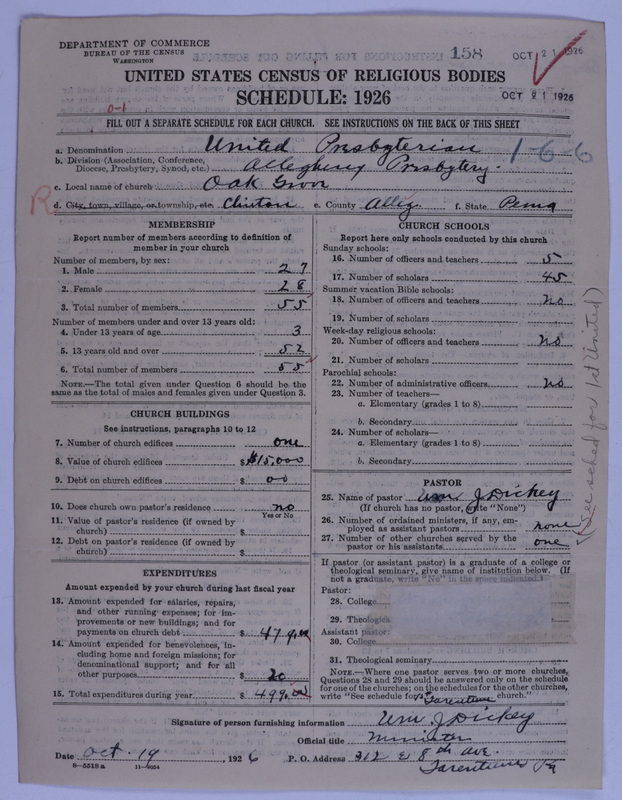 DEPARTMENT OF COMMERCE
BUREAU OF THE CENSUS
WASHINGTON
158
OCT 21 1926
UNITED STATES CENSUS OF RELIGIOUS BODIES
SCHEDULE: 1926
OCT 21 1926
0-1
FILL OUT A SEPARATE SCHEDULE FOR EACH CHURCH. SEE INSTRUCTIONS ON THE BACK OF THIS SHEET
a. Denomination United Presbyterian 1-6-6
b. Division (Association, Conference, Diocese, Presbytery, Synod, etc.) Allegheny Presbytery.
c. Local name of church Oak Grove
R
d. City, town, village, or township, etc. Clinton e. County Alleg. f. State Penna
MEMBERSHIP
Report number of members according to definition of member in your church
Number of members, by sex:
1. Male 27
2. Female 28
3. Total number of members 55
Number of members under and over 13 years old:
4. Under 13 years of age 3
5. 13 years old and over 52
6. Total number of members 55
NOTE.—The total given under Question 6 should be the same as the total of males and females given under Question 3.
CHURCH BUILDINGS
See instructions, paragraphs 10 to 12
7. Number of church edifices one
8. Value of church edifices $15,000
9. Debt on church edifices $ 00
10. Does church own pastor's residence no
Yes or No
11. Value of pastor's residence (if owned by church) $
12. Debt on pastor's residence (if owned by church) $
EXPENDITURES
Amount expended by your church during last fiscal year
13. Amount expended for salaries, repairs, and other running expenses; for improvements or new buildings; and for payments on church debt $ 479.00
14. Amount expended for benevolences, including home and foreign missions; for denominational support; and for all other purposes $ 20
15. Total expenditures during year $ 499.00
CHURCH SCHOOLS
Report here only schools conducted by this church
Sunday schools:
16. Number of officers and teachers 5
17. Number of scholars 45
Summer vacation Bible schools:
18. Number of officers and teachers no
19. Number of scholars
Week-day religious schools:
20. Number of officers and teachers no
21. Number of scholars
Parochial schools:
22. Number of administrative officers no
23. Number of teachers—
a. Elementary (grades 1 to 8)
b. Secondary
24. Number of scholars—
a. Elementary (grades 1 to 8)
b. Secondary
PASTOR
25. Name of pastor Wm J Dickey
(If church has no pastor, write "None")
26. Number of ordained ministers, if any, employed as assistant pastors none
27. Number of other churches served by the pastor or his assistants one
If pastor (or assistant pastor) is a graduate of a college or theological seminary, give name of institution below. (If not a graduate, write "No" in the space indicated.)
Pastor:
28. College
29. Theologica
Assistant pastor:
30. College
31. Theological seminary
NOTE.—Where one pastor serves two or more churches, Questions 28 and 29 should be answered only on the schedule for one of the churches; on the schedules for the other churches, write "See schedule for 1st Tarentum church."
(See sched for 1st United)
Signature of person furnishing information Wm J Dickey
Official title Minister
Date Oct. 19, 1926 P. O. Address 312 E 8th ave.
Tarentum Pa
8—5518a 11—9024